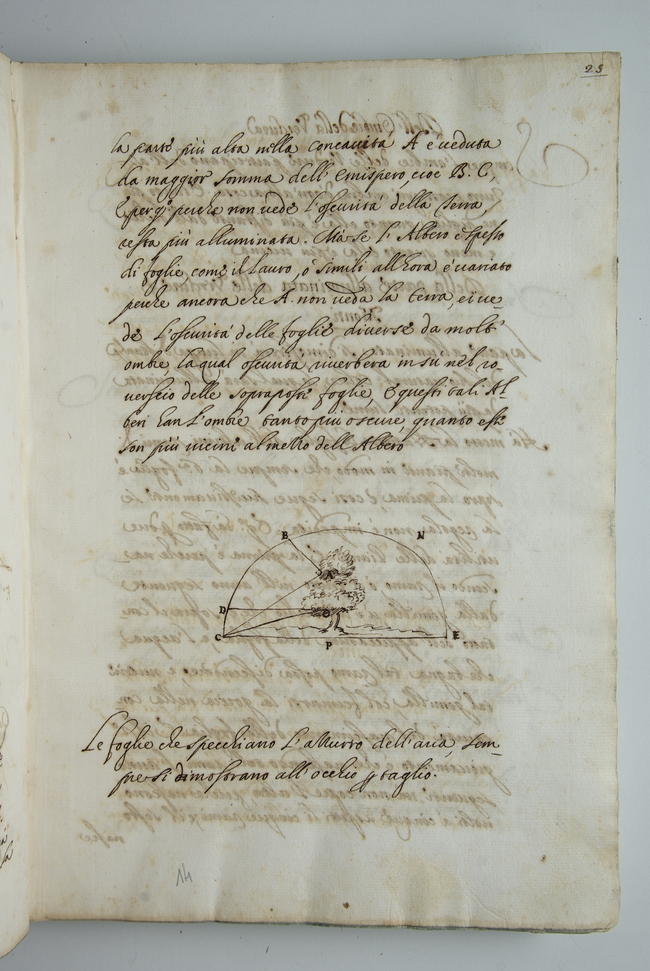 25
la parte più alta nella concavità A è veduta
da maggior somma dell' emispero, cioè B. C,
perche non vede l'oscurità della terra,
resta più alluminata. Mà se l'Albero è spesso
di foglie, come il Lauro, ò simili all'hora è variato
perche ancora che A. non veda la terra, ei ve-
de l'oscurità delle foglie diverse da molt'
ombre, la qual oscurità riverbera in su nel ro-
verscio delle sopraposte foglie, & questi tali Al-
beri han l'ombre tanto più oscure, quanto esse
son più vicini al mezzo dell'Albero
B N
A
D O
C P E
Le foglie che specchiano l'azzurro dell'aria, sem-
pre si dimostrano all'occhio p taglio.
14